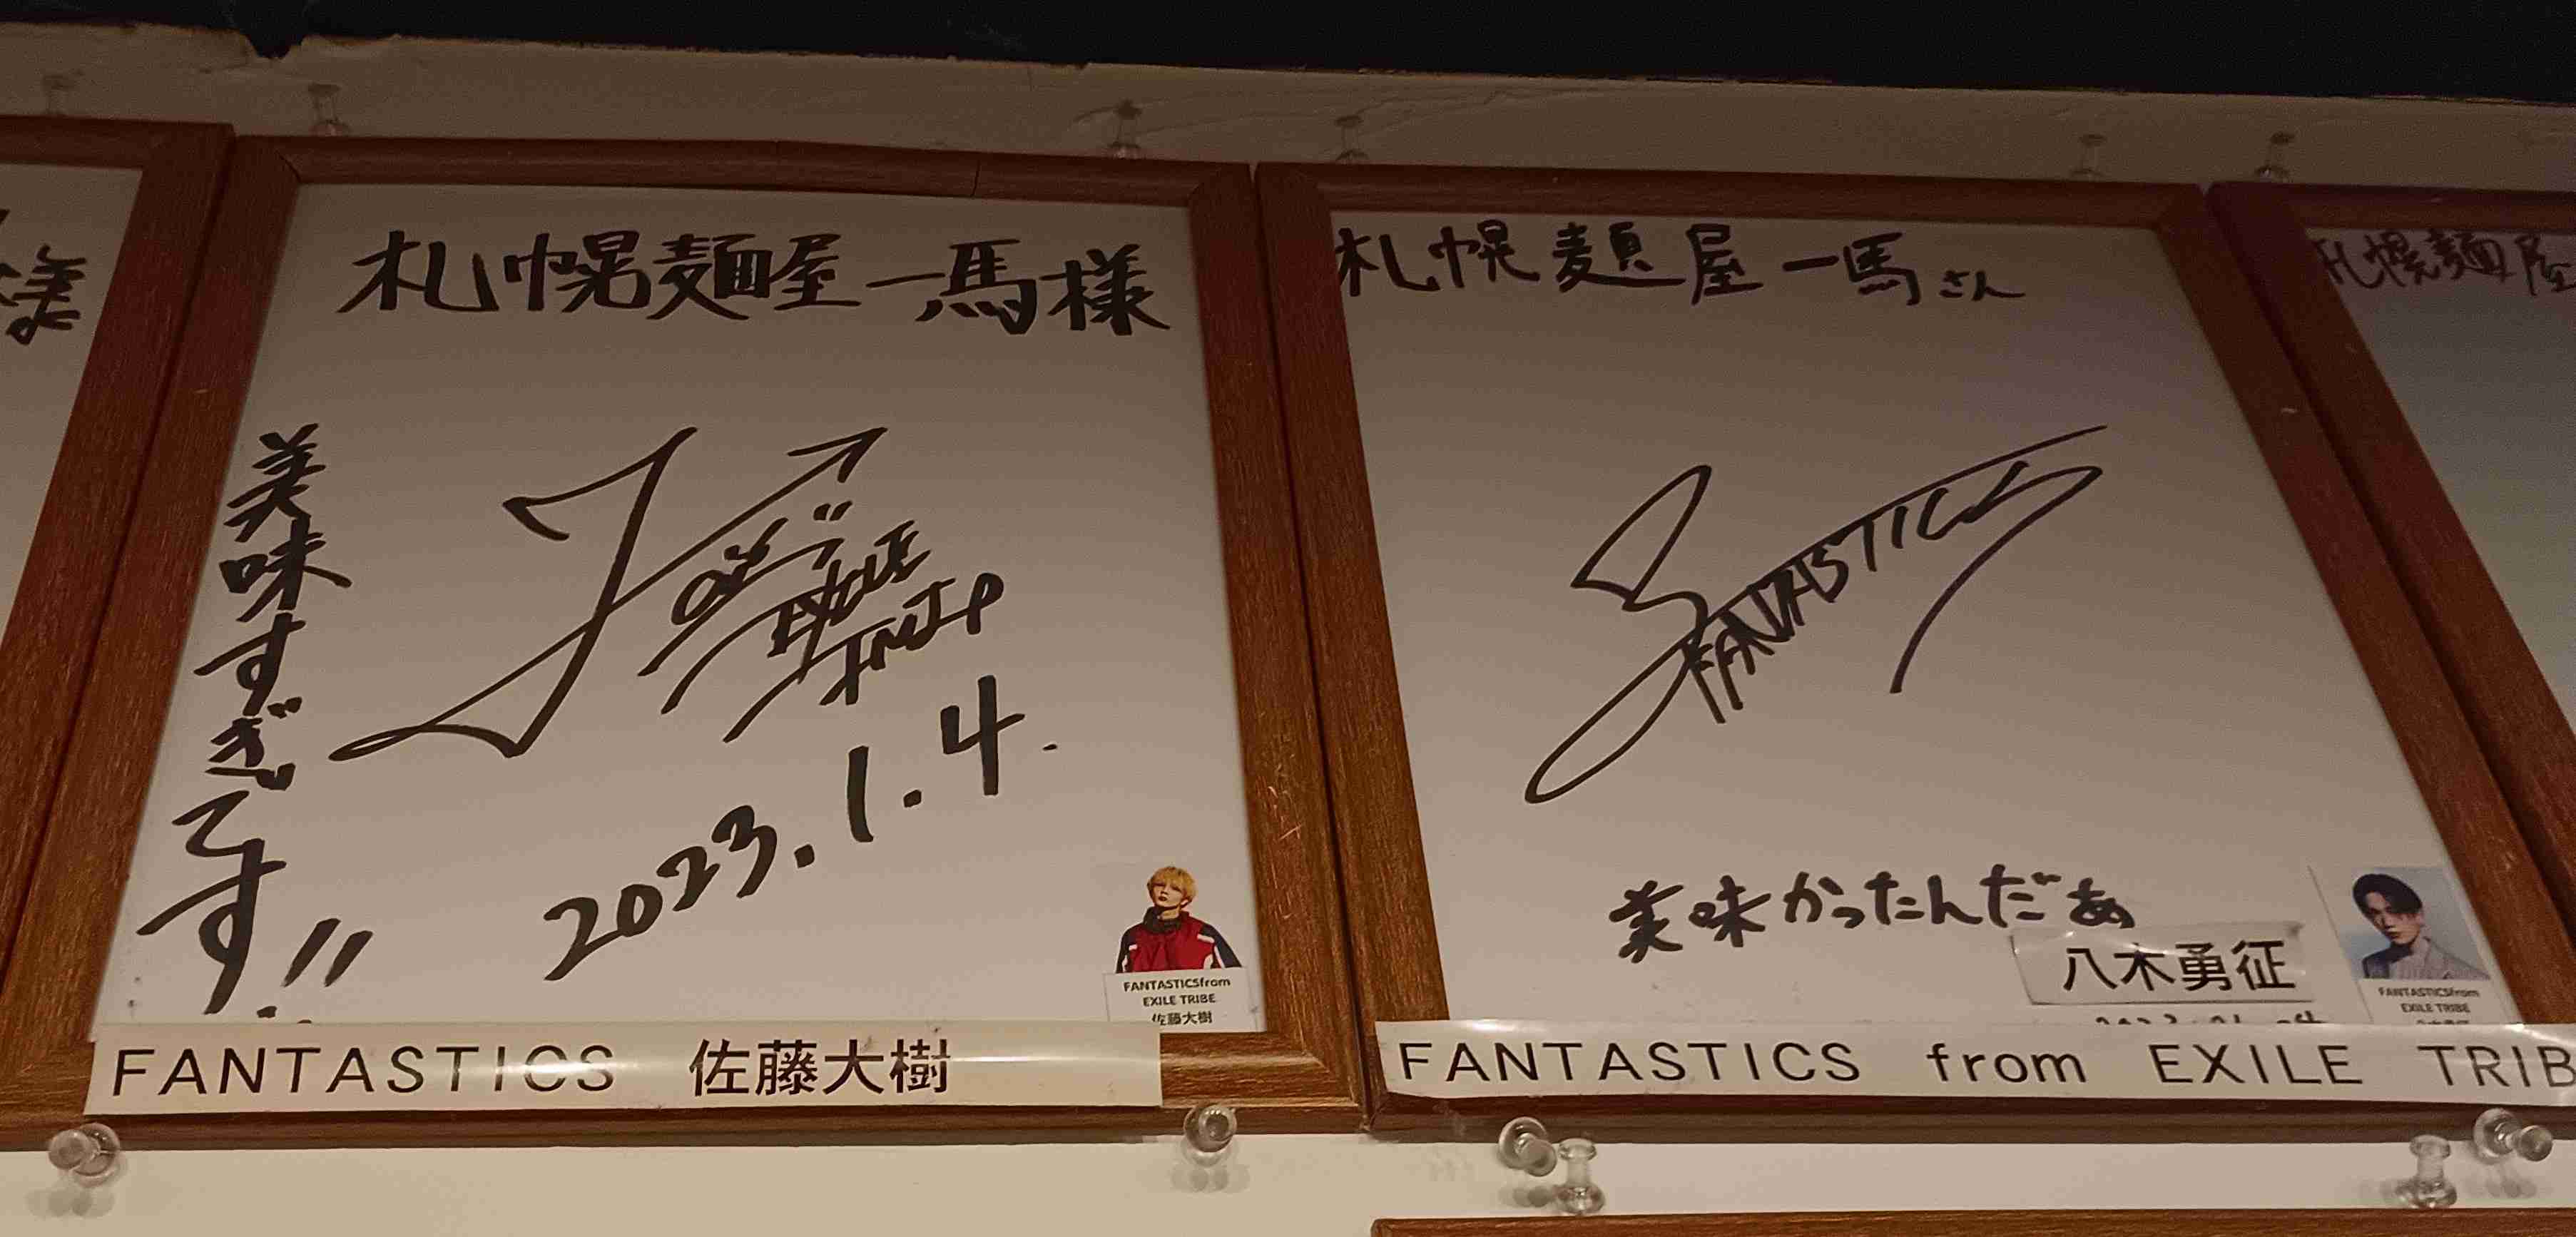 様
札幌麺屋一馬様
美味すぎです!!
EXILE
2023.1.4.
FANTASTICSfrom
EXILE TRIBE
佐藤大樹
FANTASTICS 佐藤大樹
札幌麺屋一馬さん
FANTASTICS
美味かったんだぁ
八木勇征
FANTASTICSfrom
EXILE TRIBE
FANTASTICS from EXILE TRIB
札幌麺屋